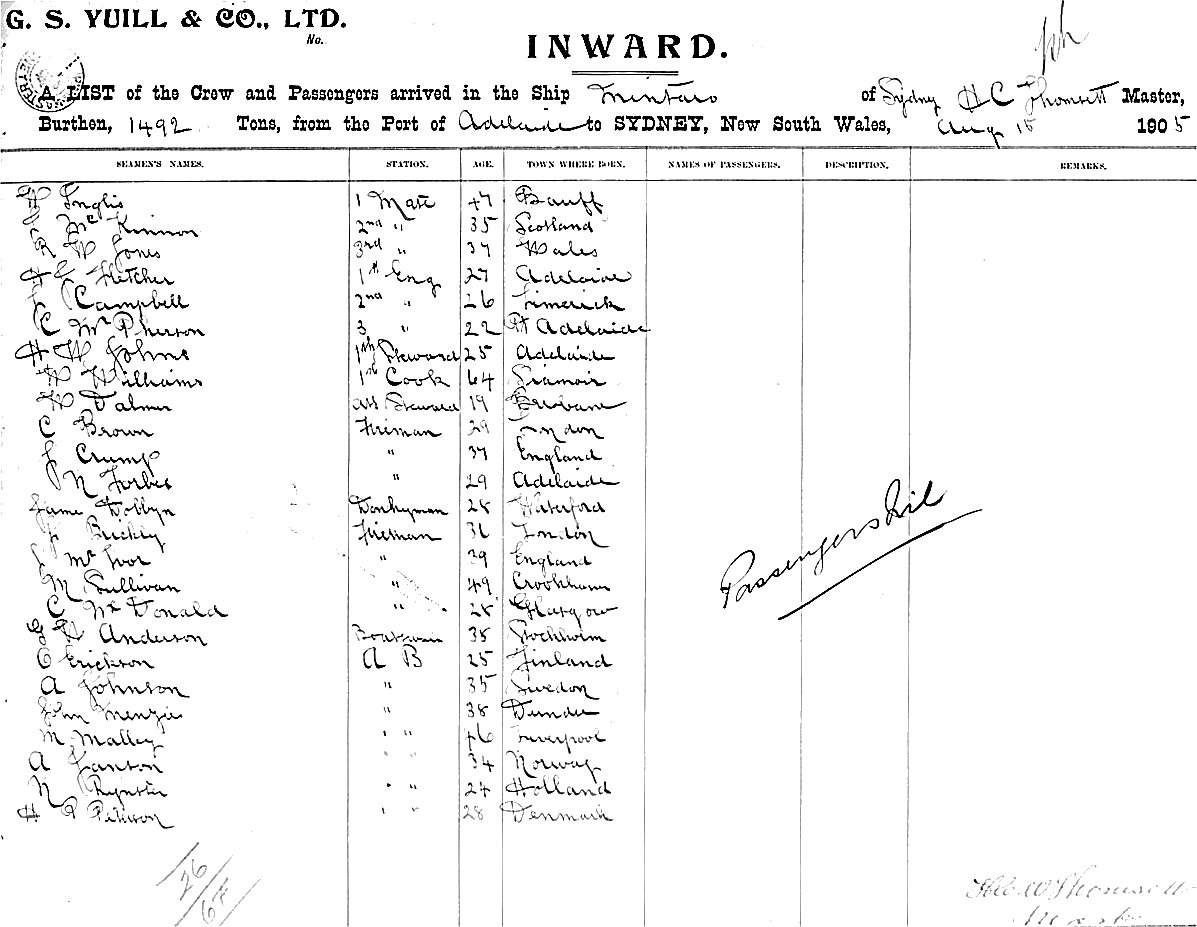 G. S. YUILL & CO., LTD.
No.
INWARD.
A LIST of the Crew and Passengers arrived in the Ship Mintaro of Sydney H C Thomsett Master,
Burthen, 1492 Tons, from the Port of Adelaide to SYDNEY, New South Wales, Aug 15 1905
SEAMEN'S NAMES. STATION. AGE. TOWN WHERE BORN. NAMES OF PASSENGERS. DESCRIPTION. REMARKS.
Inglis 1 Mate 47 Banff
McKinnon 2nd " 35 Scotland
R W Jones 3rd " 37 Wales
H Fletcher 1st Eng 27 Adelaide
Campbell 2nd " 26 Limerick
C McPherson 3 " 22 Pt Adelaide
H W Johns 1th Steward 25 Adelaide
Williams 1st Cook 64
Steward 19 Brisbane
C Brown Fireman 29 London
J Crump " 37 England
N Forbes " 29 Adelaide
Dobbyn Donkyman 28 Waterford
J Fireman 31 London
McIvor " 39 England
M Sullivan " 49 Crookhaven
C McDonald " 28 Glasgow
Anderson Boatswain 38 Stockholm
Erickson A B 25 Finland
A Johnson " 35 Sweden
John Menzies " 38 Dundee
M Malley " " 46 Liverpool
A " " 34 Norway
N " " 24 Holland
H P Peterson " " 28 Denmark
Passengers Nil
26
Thomsett
Master